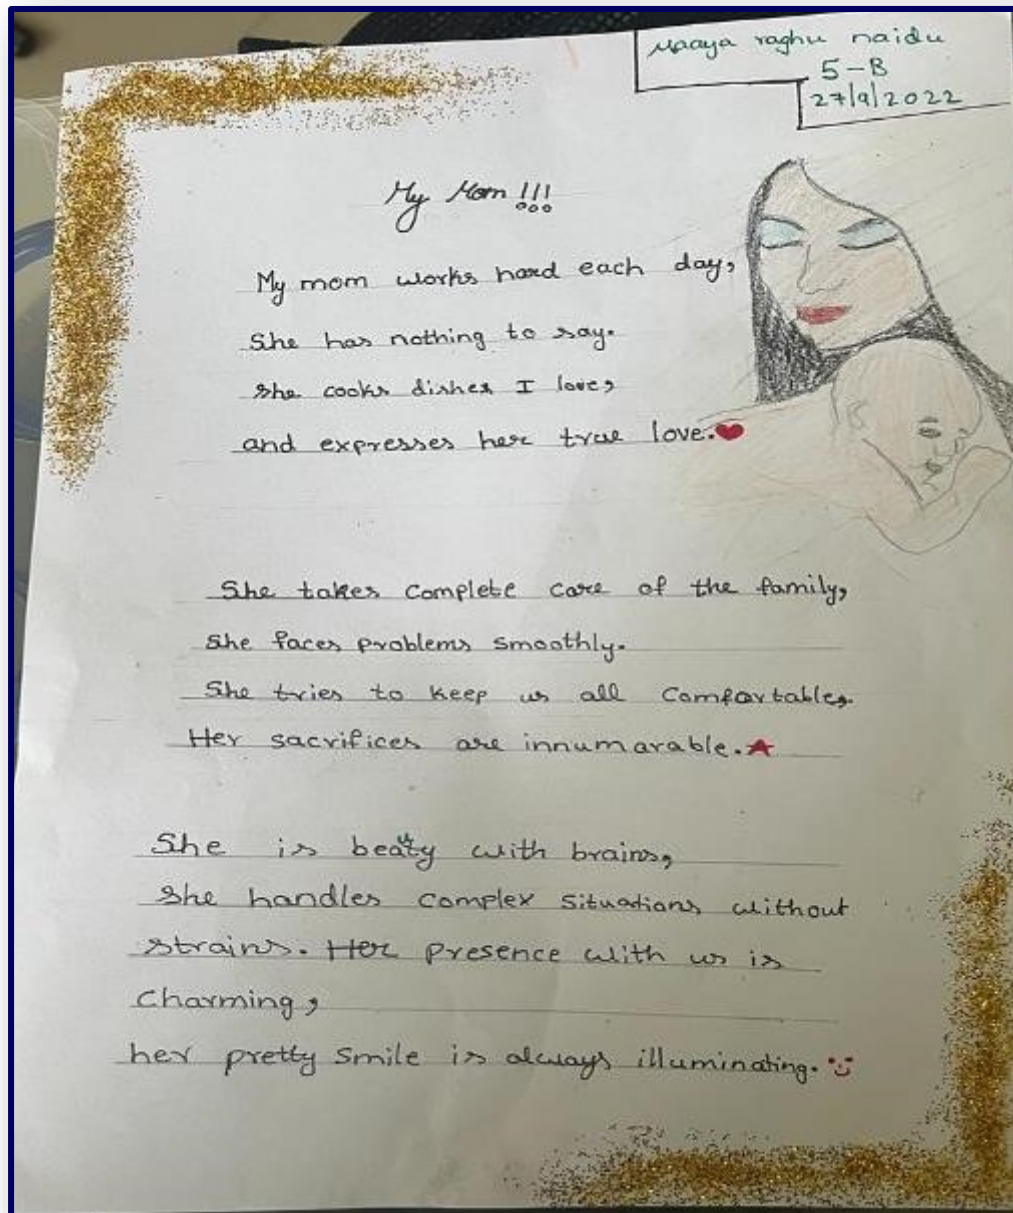 Maaya raghu naidu
5-B
27/9/2022
My Mom !!!
My mom works hard each day,
She has nothing to say.
She cooks dishes I love,
and expresses her true love.
She takes complete care of the family,
She faces problems smoothly.
She tries to keep us all comfortable,
Her sacrifices are innumarable.
She is beauty with brains,
She handles complex situations without
strains. Her presence with us is
charming,
her pretty smile is always illuminating.